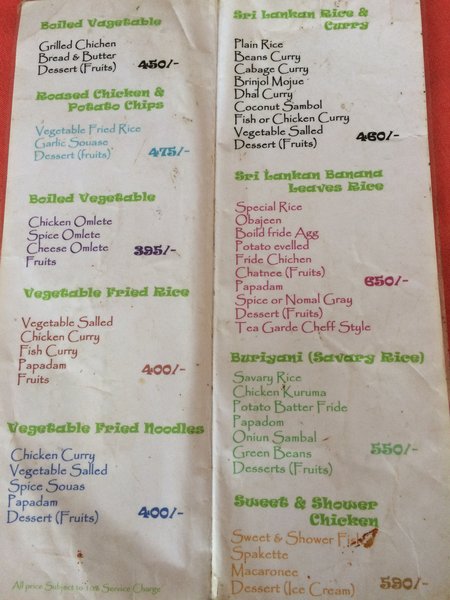 Boiled Vagetable
Grilled Chichen
Bread & Butter
Dessert (Fruits) 450/-
Roased Chicken &
Potato Chips
Vegetable Fried Rice
Garlic Souase
Dessert (fruits) 475/-
Boiled Vegetable
Chicken Omlete
Spice Omlete
Cheese Omlete 395/-
Fruits
Vegetable Fried Rice
Vegetable Salled
Chicken Curry
Fish Curry
Papadam
Fruits 400/-
Vegetable Fried Noodles
Chicken Curry
Vegetable Salled
Spice Souas
Papadam
Dessert (Fruits) 400/-
All price Subject to 10% Service Charge
Sri Lankan Rice &
Curry
Plain Rice
Beans Curry
Cabage Curry
Brinjol Mojue
Dhal Curry
Coconut Sambol
Fish or Chicken Curry
Vegetable Salled 460/-
Dessert (Fruits)
Sri Lankan Banana
Leaves Rice
Special Rice
Obajeen
Boild fride Agg
Potato evelled
Fride Chichen
Chatnee (Fruits)
Papadam 650/-
Spice or Nomal Gray
Dessert (Fruits)
Tea Garde Cheff Style
Buriyani (Savary Rice)
Savary Rice
Chicken Kuruma
Potato Batter Fride
Papadom
Oniun Sambal
Green Beans 550/-
Desserts (Fruits)
Sweet & Shower
Chicken
Sweet & Shower Fish
Spakette
Macaronee
Dessert (Ice Cream) 590/-